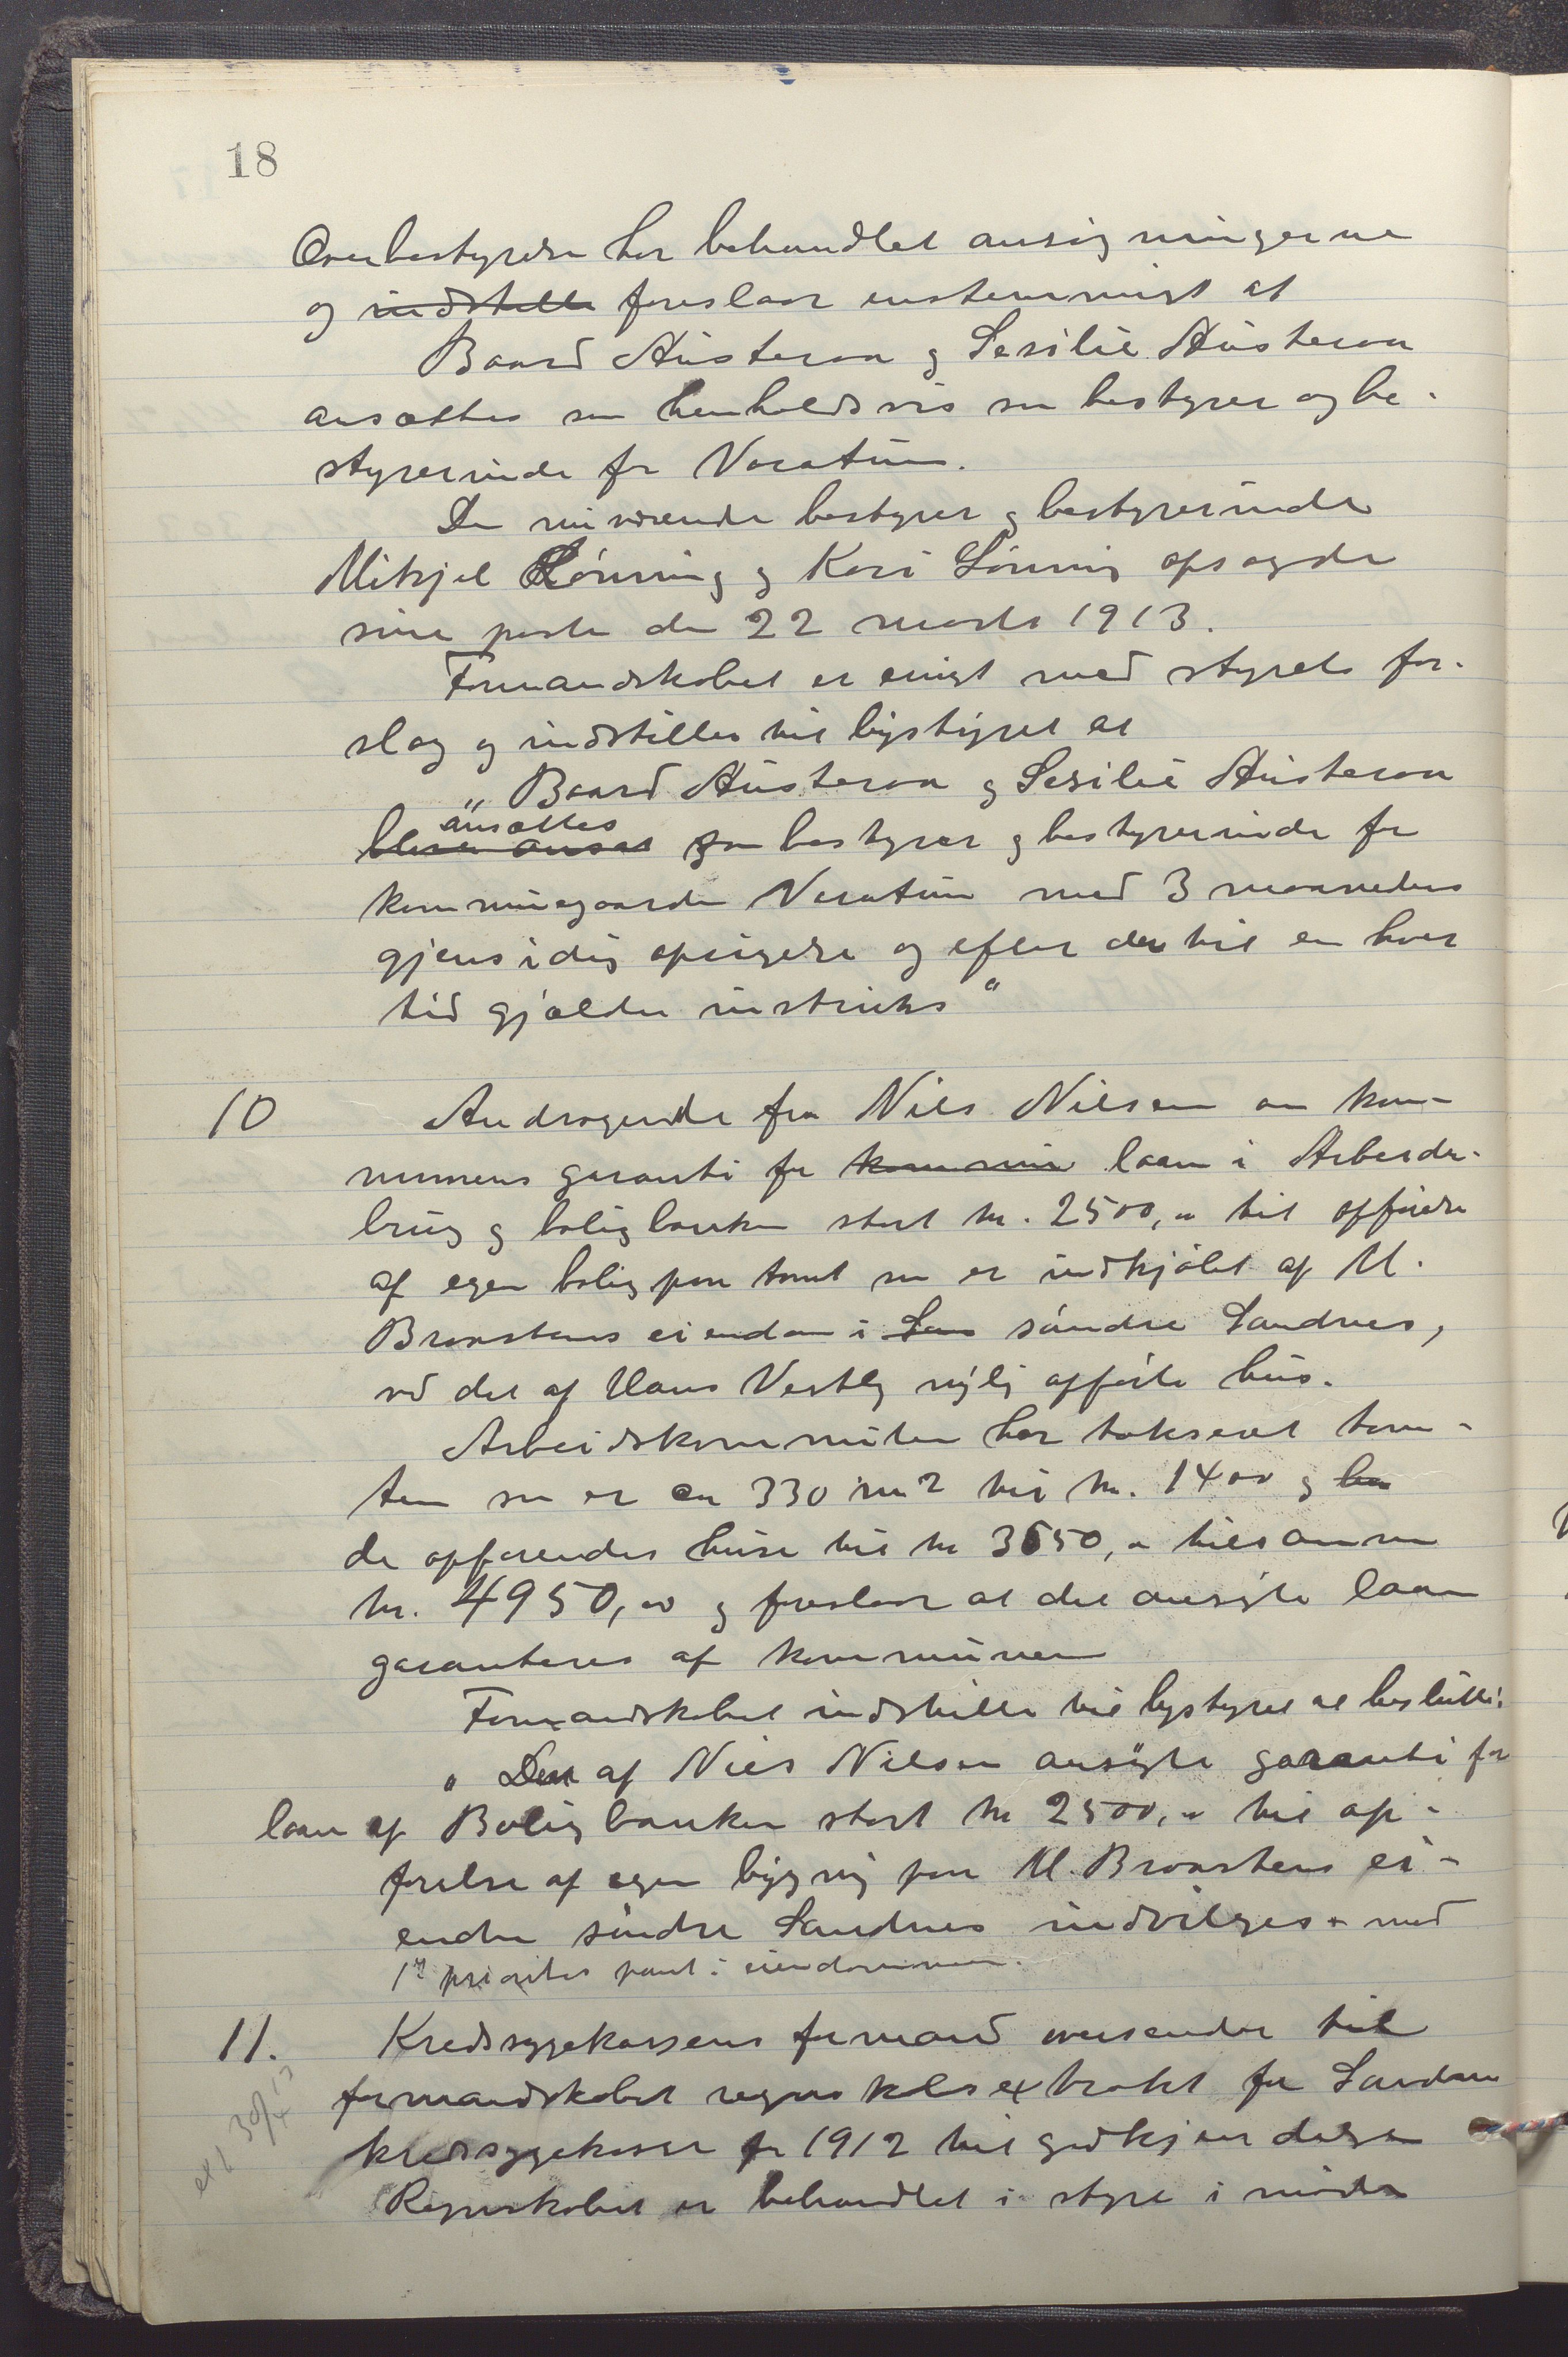 18
Overbestyrelsen har behandlet ansøgningerne
og indstille foreslaar enstemmigt at
Baard Austeraa og Sesilie Austeraa
ansættes som henholdsvis som bestyrer og be-
styrerinde for Varatun.
De nuværende bestyrer og bestyrerinde
Mikjel Lønning og Kari Lønning opsagde
sine poster den 22 marts 1913.
Formandskabet er enigt med styrets for-
slag og indstiller til bystyret at
"Baard Austeraa og Sesilie Austeraa
ansættes
bliver ansat som bestyrer og bestyrerinde for
kommunegaarden Varatun med 3 maaneders
gjensidig opsigelse og efter den til en hver
tid gjælder instruks"
10 Andragende fra Nils Nilsen om kom-
munens garanti for kommun laan i Arbeider-
brug og boligbanken stort kr. 2500,00 til opførelse
af egen bolig paa tomt som er indkjøbt af M.
Braastens eiendom i San søndre Sandnes,
ved det af Hans Vestly nylig opførte hus.
Arbeidskommiteen har takseret tom-
ten som er ca 330 m2 til kr. 1400 og ha
de opførendes huse til kr 3550,00 tilsammen
kr. 4950,00 og foreslaar at det ansøgte laan
garanteres af kommunen
Formandskabet indstiller til bystyret at beslutte:
"Den af Nils Nilsen ansøgte garanti for
laan af Boligbanken stort kr 2500,00 til op-
førelse af egen bygning paa M. Braastens ei-
endom søndre Sandnes indvilges med
1ste prioritets pant i eiendommen.
11. Kredssygekassens formand oversender til
formandskabet regnskabsextrakt for Sandnes
kredssygekasse for 1912 til godkjendelse
Regnskabet er behandlet i styre i møde
ex 6 30/4 13